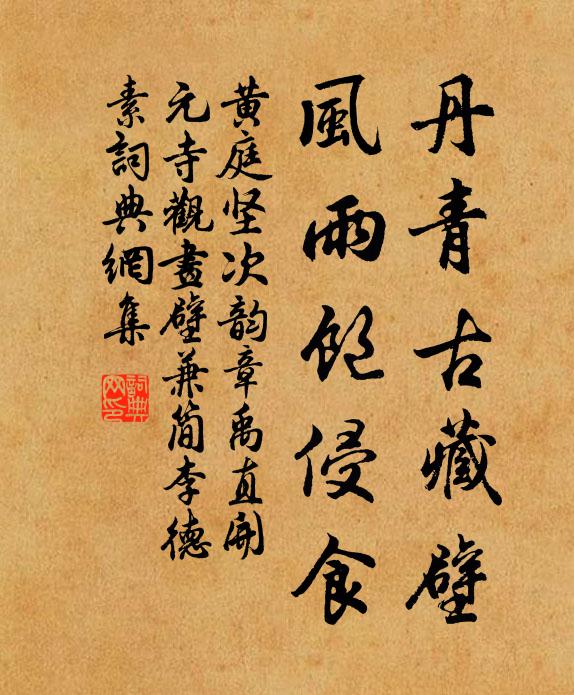 丹青古藏壁
風雨飽侵食
黄庭坚次韵章禹直開
元寺觀畫壁兼简李德
素詞典網集
詞典网印